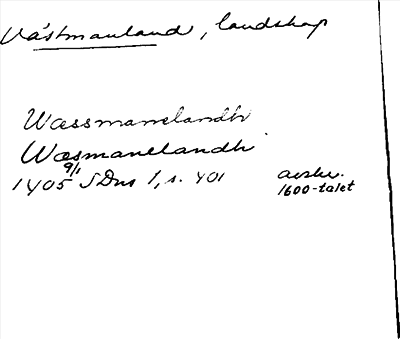 Västmanland, landskap
Wæssmannelandh
Wæsmanelandh
1405 9/1 SDns 1, s. 401 avskr. 1600-talet